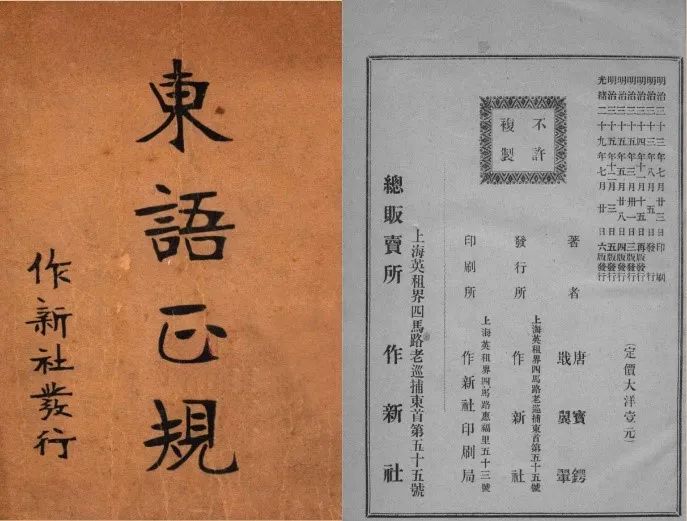 東語正規
作新社發行
明治三十三年七月廿三日印刷
明治三十三年八月五日發行
明治三十四年十一月十五日再版發行
明治三十五年三月卅一日三版發行
明治三十五年五月廿八日四版發行
明治三十五年十二月三日五版發行
光緒二十九年七月廿日六版發行
(定價大洋壹元)
著者
唐寶鍔
戢翼翬
發行所
上海英租界四馬路老巡捕東首第五十五號
作新社
印刷所
上海英租界四馬路惠福里五十三號
作新社印刷局
不許
複製
總販賣所
上海英租界四馬路老巡捕東首第五十五號
作新社